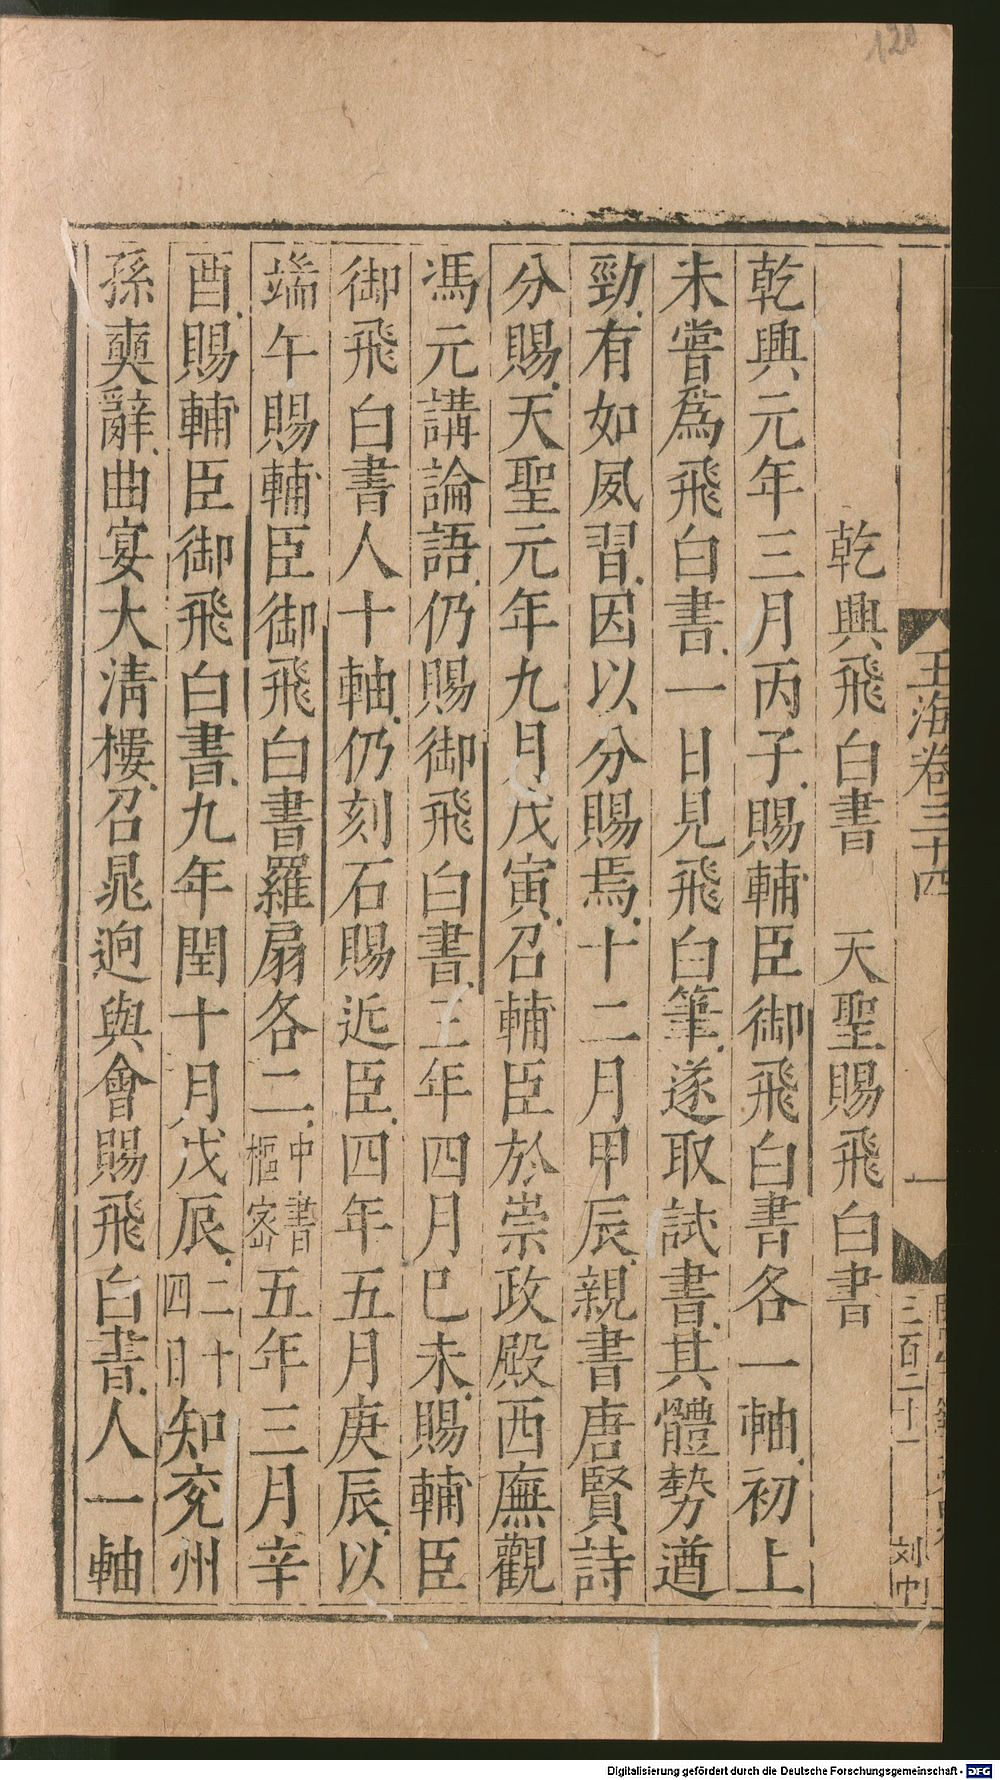 120
玉海卷三十四
一
三百二十一
刘中
乾興飛白書　天聖賜飛白书
乾興元年三月丙子賜輔臣御飛白書各一軸初上
未嘗爲飛白書一日見飛白筆遂取試書其體勢遒
勁有如夙習因以分賜焉十二月甲辰親書唐賢詩
分賜天聖元年九月戊寅召輔臣於崇政殿西廡觀
馮元講論語仍賜御飛白書三年四月巳未賜輔臣
御飛白書人十軸仍刻石賜近臣四年五月庚辰以
端午賜輔臣御飛白書羅扇各二中書樞密五年三月辛
酉賜輔臣御飛白書九年閏十月戊辰二十四日知兖州
孫奭辭曲宴大清樓召晁逈與會賜飛白書人一軸
Digitalisierung gefördert durch die Deutsche Forschungsgemeinschaft - DFG